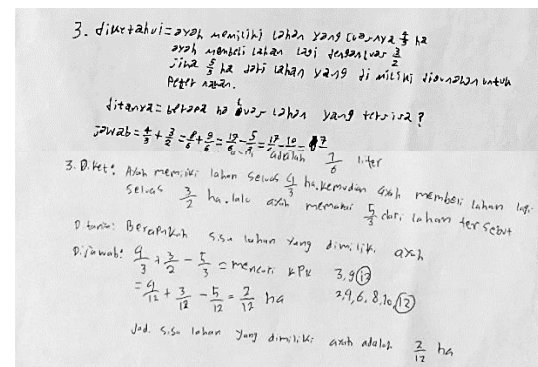 3. diketahui = ayah memiliki lahan yang luasnya 4/3 ha
ayah membeli lahan lagi dengan luas 3/2
jika 5/3 ha dari lahan yang di miliki digunakan untuk
peternakan.
ditanya = berapa ha luas lahan yang tersisa?
jawab = 4/3 + 3/2 = 8/6 + 9/6 = 17/6 - 5/3 = 17/6 - 10/6 = 7
adalah 7/6 liter
3. Diket: Ayah memiliki lahan seluas 4/3 ha. kemudian ayah membeli lahan lagi
seluas 3/2 ha. lalu ayah memakai 5/3 dari lahan tersebut
Ditanya: Berapakah sisa lahan yang dimiliki ayah
Dijawab: 4/3 + 3/2 - 5/3 = mencari KPK 3, 9, 12
= 4/12 + 3/12 - 5/12 = 2/12 ha 2, 4, 6, 8, 10, 12
Jad. sisa lahan yang dimiliki ayah adalah 2/12 ha